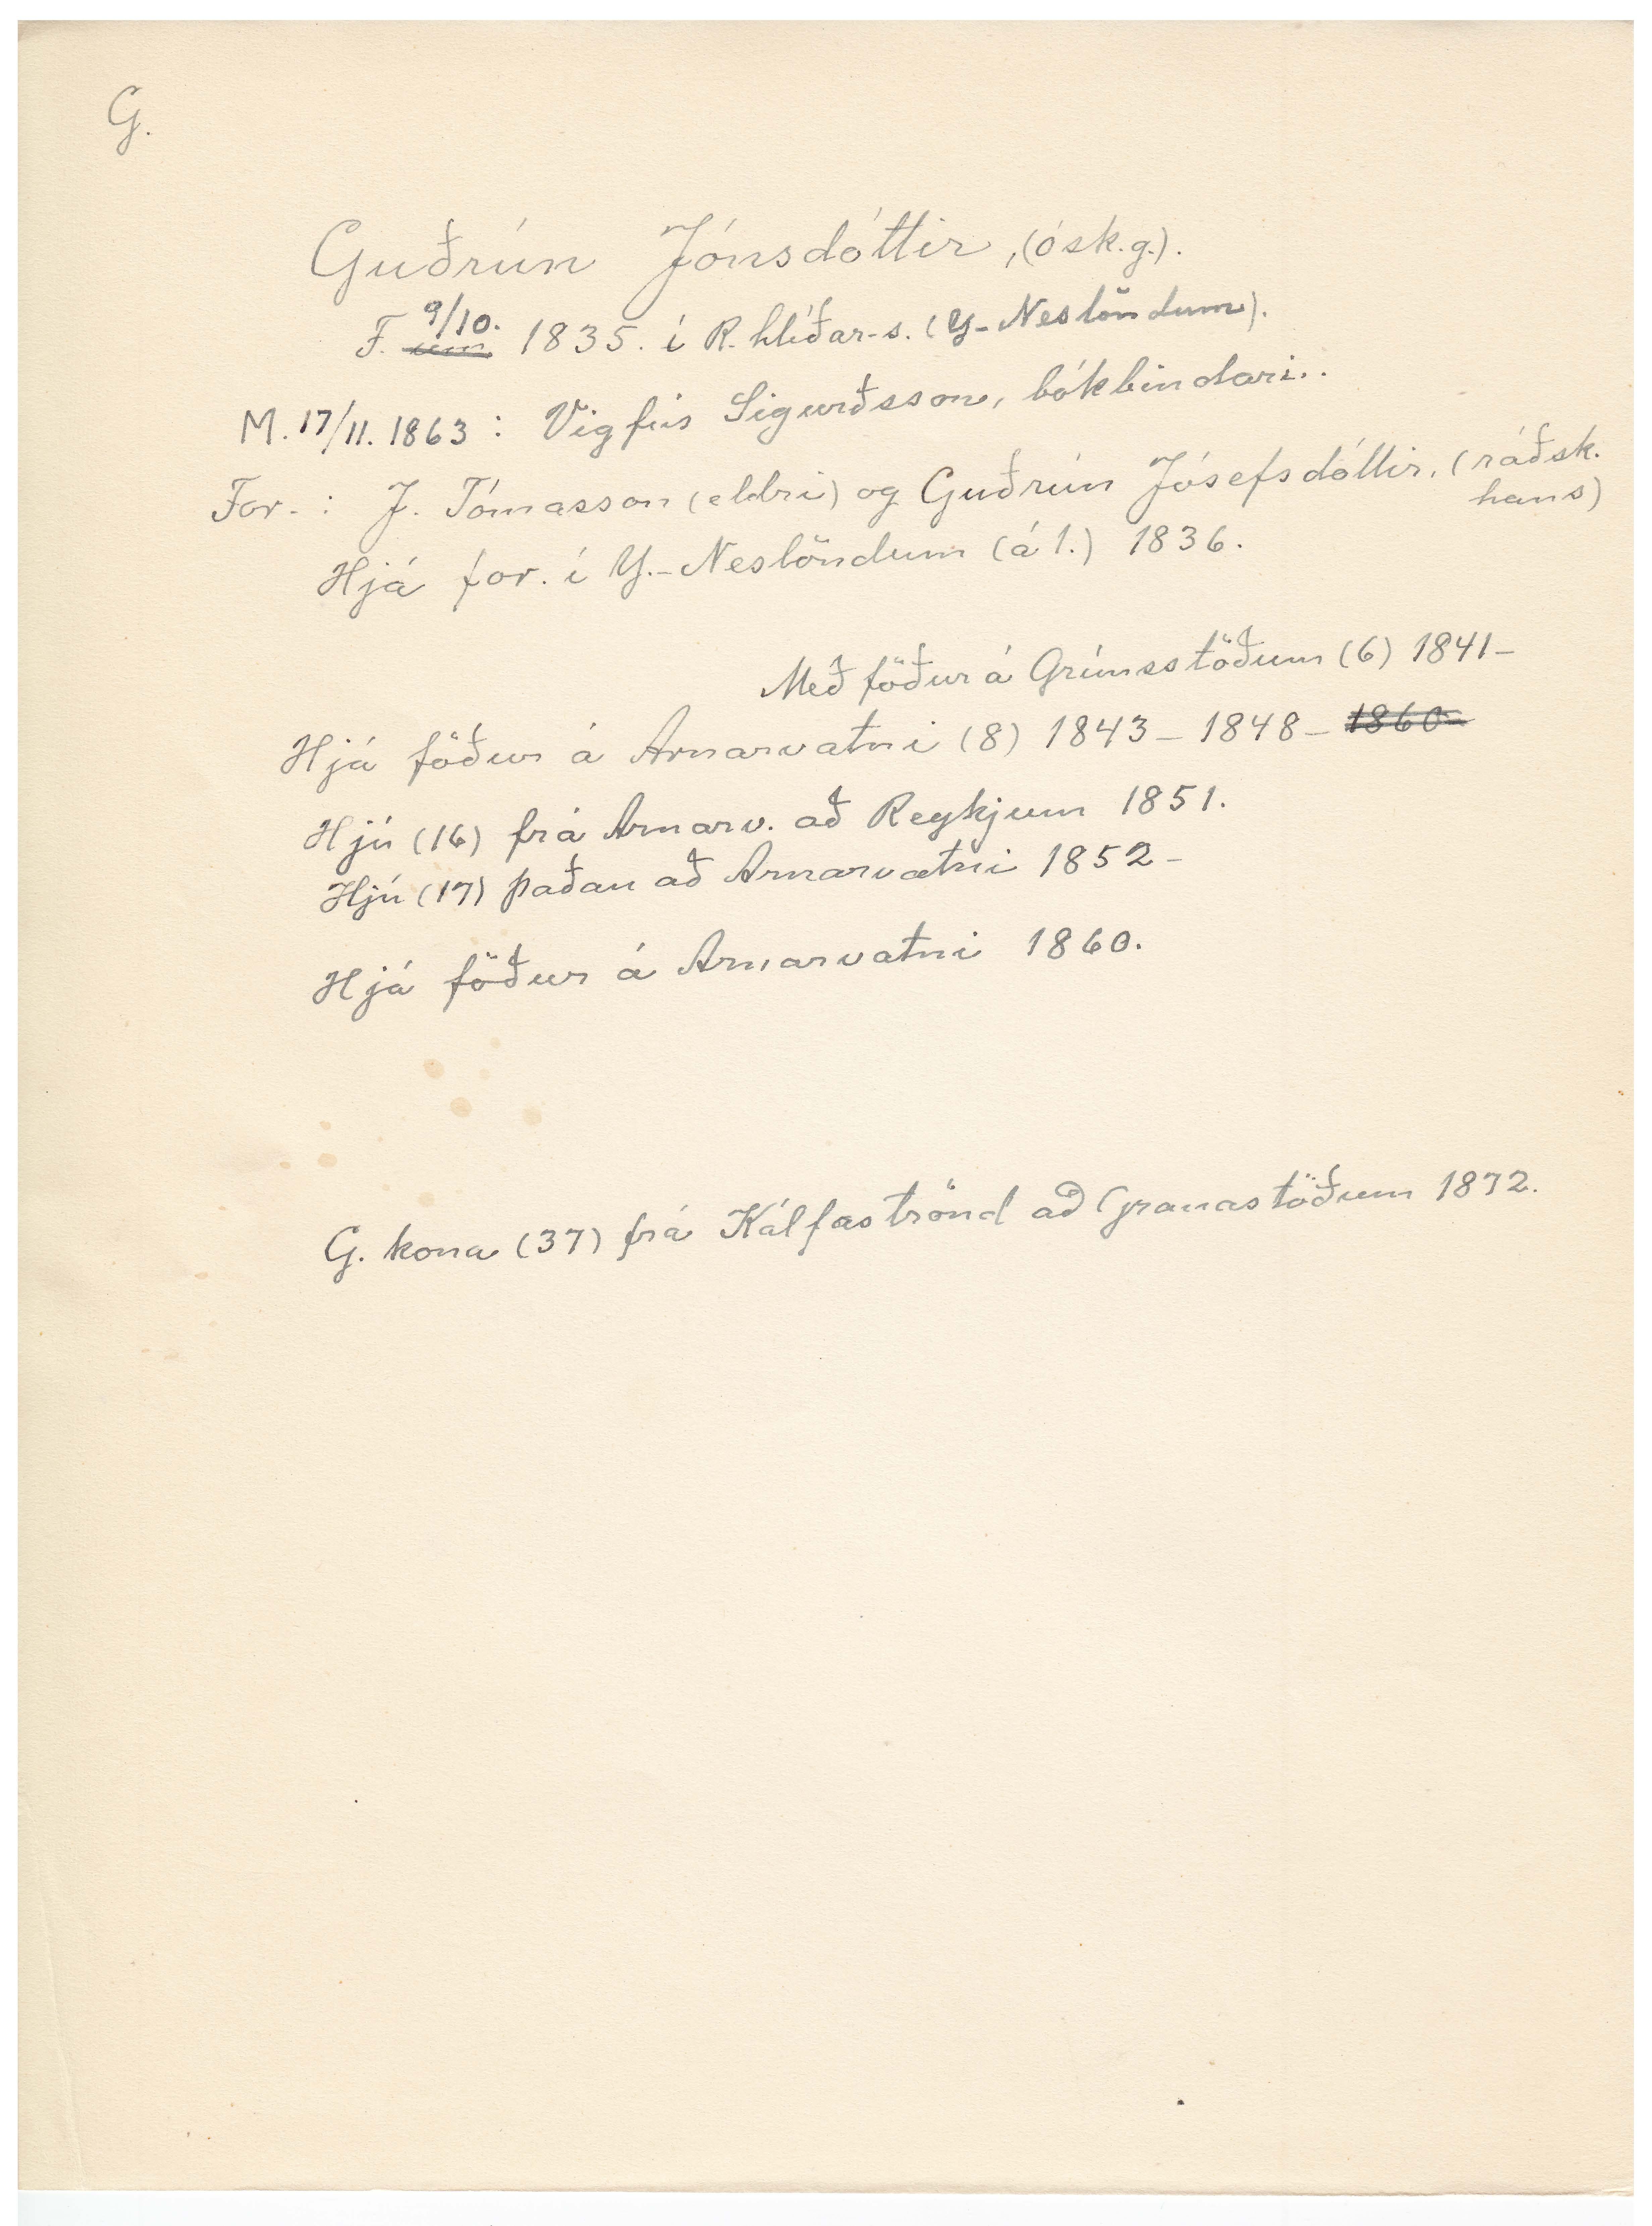 G.
Guðrún Jónsdóttir, (ósk.g.).
F. ~~um~~ 9/10. 1835. í R.hlíðar-s. (Y-Neslöndum).
M. 17/11. 1863: Vigfús Sigurðsson, bókbindari..
For.: J. Tómasson (eldri) og Guðrún Jósefsdóttir. (ráðsk. hans)
Hjá for. í Y.-Neslöndum (á 1.) 1836.
Með föður á Grímsstöðum (6) 1841-
Hjá föður á Arnarvatni (8) 1843-1848- ~~1860-~~
Hjú (16) frá Arnarv. að Reykjum 1851.
Hjú (17) þaðan að Arnarvatni 1852-
Hjá föður á Arnarvatni 1860.
G. kona (37) frá Kálfaströnd að Granastöðum 1872.